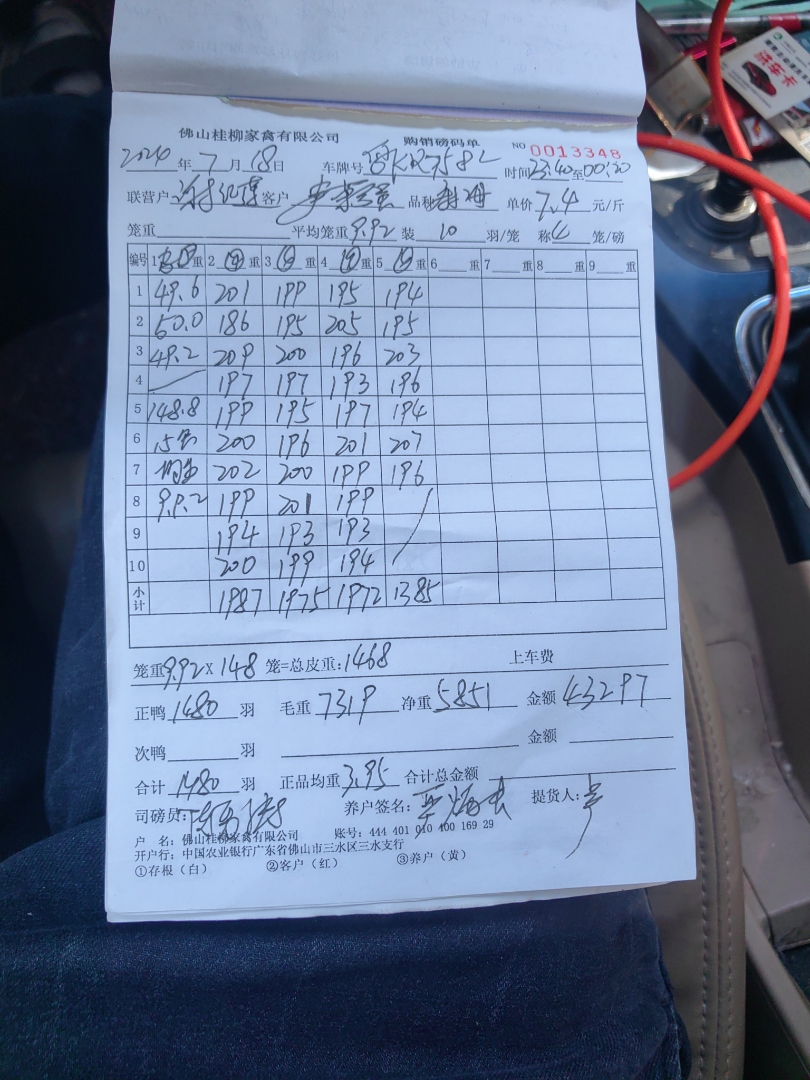 佛山桂柳家禽有限公司 购销磅码单 NO 0013348
2024年7月18日 车牌号 时间23:40至00:20
联营户 客户 品种 单价7.4元/斤
笼重 平均笼重9.92 装10羽/笼 称4笼/磅
编号 1 重 2 ④ 重 3 ④ 重 4 ④ 重 5 ④ 重 6 重 7 重 8 重 9 重
1 49.6 201 199 195 194
2 50.0 186 195 205 195
3 49.2 209 200 196 203
4 197 197 193 196
5 148.8 199 195 197 194
6 15 200 196 201 207
7 202 200 199 196
8 9.9.2 199 201 199
9 194 193 193
10 200 199 194
小计 1987 1975 1972 1385
笼重9.92×148笼=总皮重:1468 上车费
正鸭1480羽 毛重7319 净重5851 金额43297
次鸭 羽 金额
合计1480羽 正品均重3.95 合计总金额
司磅员: 养户签名: 提货人:
户 名:佛山桂柳家禽有限公司 账号:444 401 010 400 169 29
开户行:中国农业银行广东省佛山市三水区三水支行
①存根(白) ②客户(红) ③养户(黄)
洗车卡